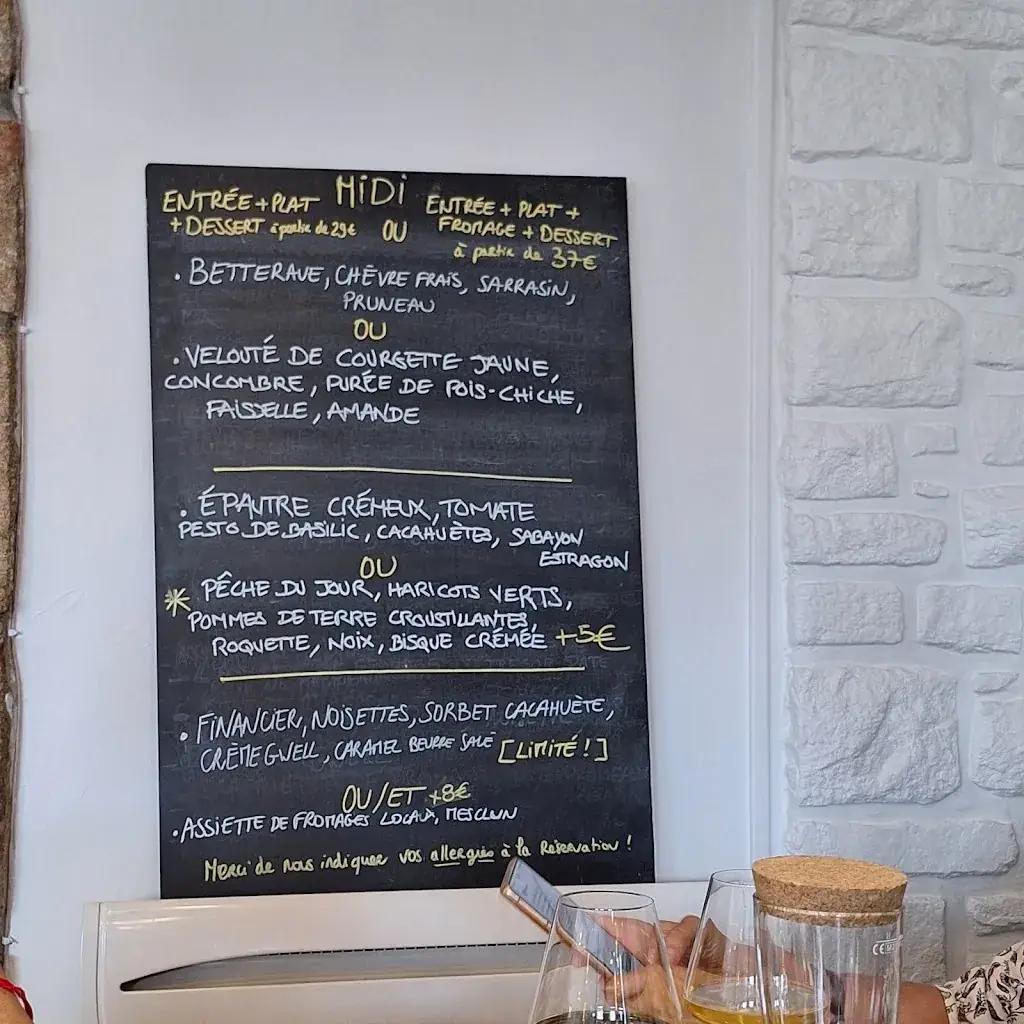 MiDi
ENTRÉE + PLAT
+ DESSERT à partir de 29€
OU
ENTRÉE + PLAT +
FROMAGE + DESSERT
à partir de 37€
• BETTERAVE, CHÈVRE FRAIS, SARRASIN,
PRUNEAU
OU
• VELOUTÉ DE COURGETTE JAUNE,
CONCOMBRE, PURÉE DE POIS-CHICHE,
FAISSELLE, AMANDE
• ÉPAUTRE CRÉMEUX, TOMATE
PESTO DE BASILIC, CACAHUÈTES, SABAYON
ESTRAGON
OU
* PÊCHE DU JOUR, HARICOTS VERTS,
POMMES DE TERRE CROUSTILLANTES,
ROQUETTE, NOIX, BISQUE CRÉMÉE +5€
• FINANCIER, NOISETTES, SORBET CACAHUÈTE,
CRÈME GWELL, CARAMEL BEURRE SALÉ [LIMITÉ!]
OU/ET +8€
• ASSIETTE DE FROMAGES LOCAUX, MESCLUN
Merci de nous indiquer vos allergies à la Réservation !